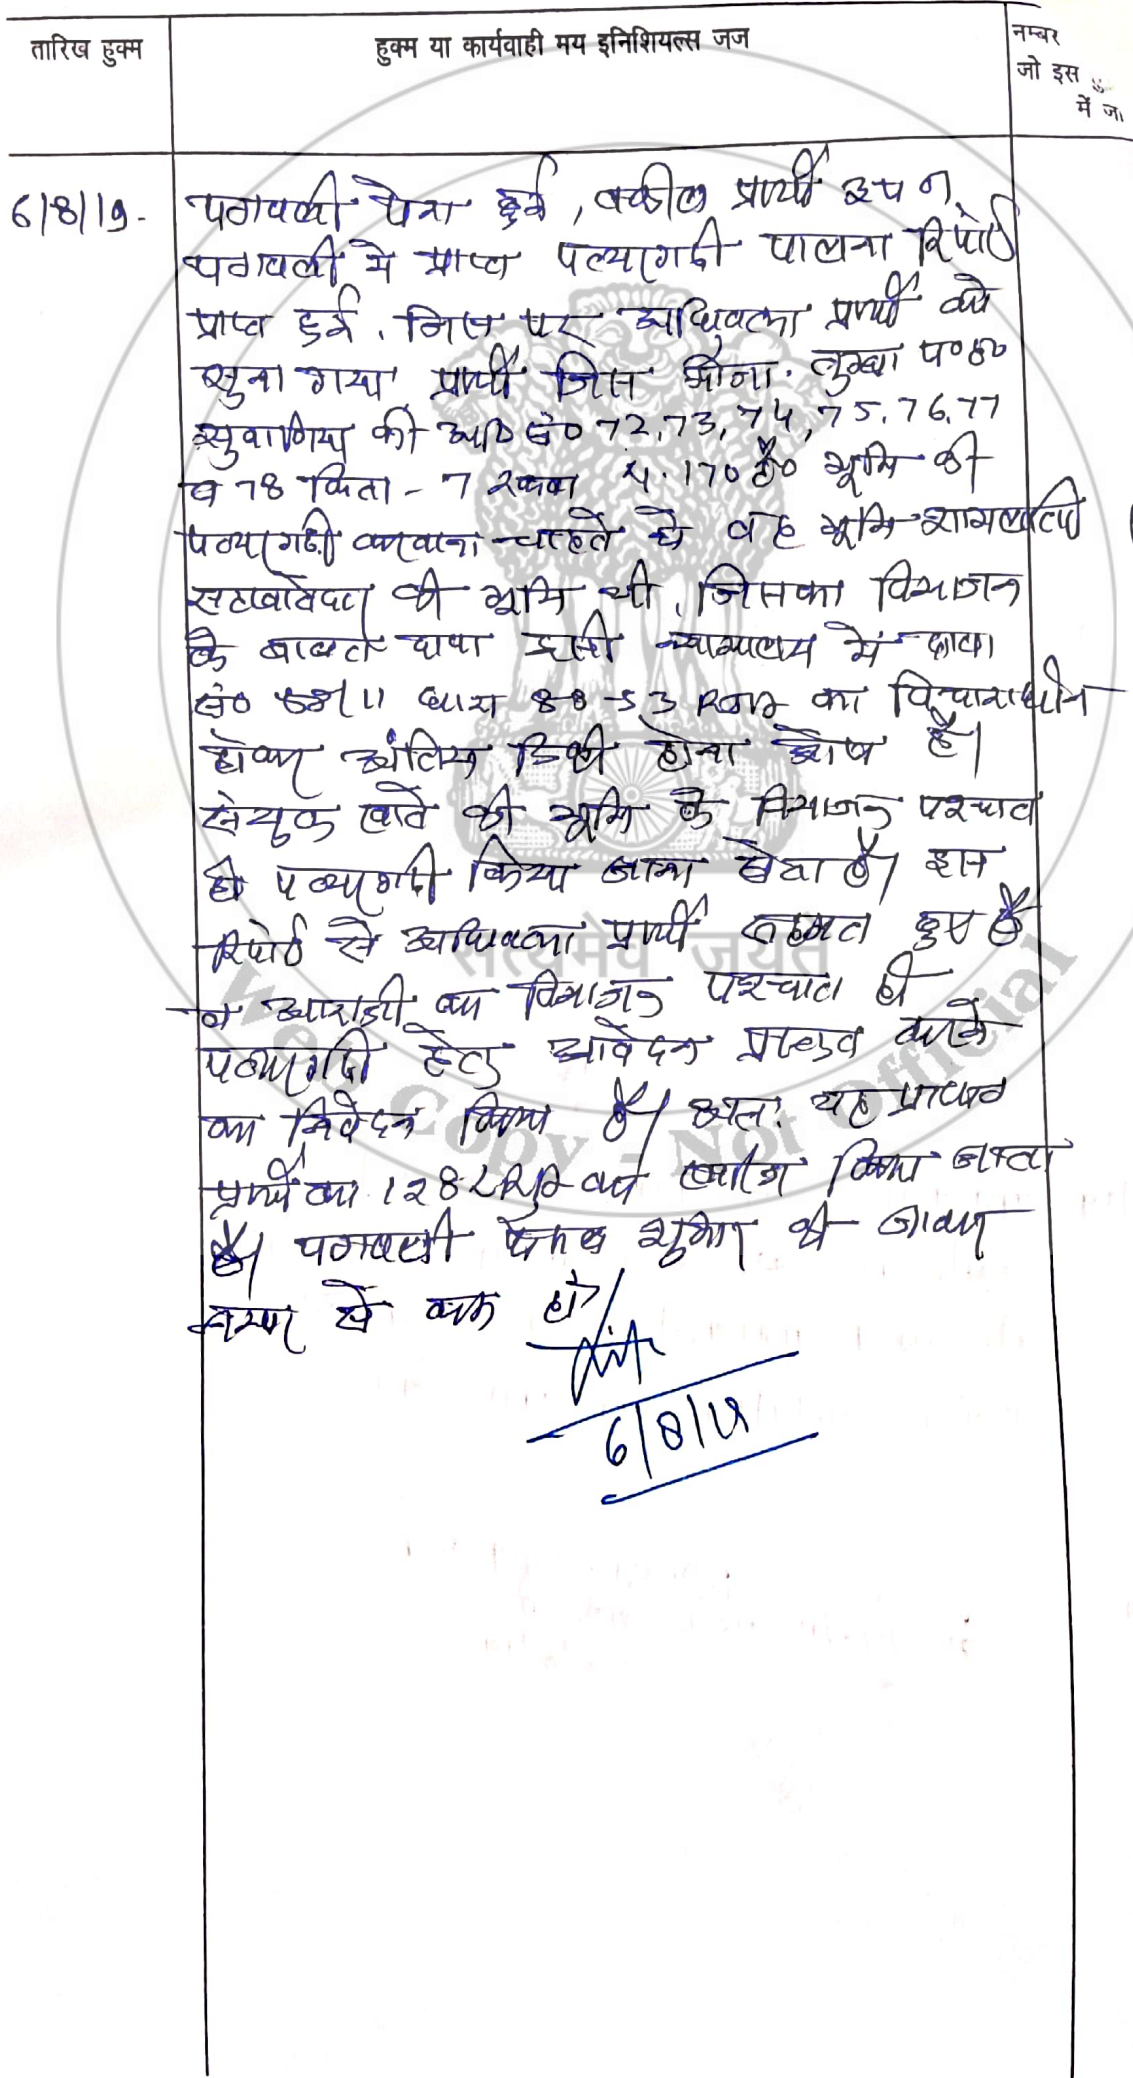 तारिख हुक्म
हुक्म या कार्यवाही मय इनिशियल्स जज
नम्बर
जो इस
में जा
6/8/19- पत्रावली पेश हुई, वकील प्रार्थी उप०
पत्रावली में प्राप्त पत्थरगढी पालना रिपोर्ट
प्राप्त हुई. जिस पर अधिवक्ता प्रार्थी को
सुना गया, प्रार्थी जिस मौजा. प०ह०
सुवाणिया की आ० सं० 72, 73, 74, 75, 76, 77
व 78 किता - 7 रकबा 4.170 है० भूमि की
पत्थरगढी करवाना चाहते थे वह भूमि शामलाती
सहखातेदार की भूमि थी, जिसका विभाजन
के बाबत दावा इसी न्यायालय में दावा
सं० /11 धारा 88-53 का विचाराधीन
होकर अंतिम डिक्री होना शेष है।
संयुक्त खाते की भूमि के विभाजन पश्चात
ही पत्थरगढी किया जाना होता है। इस
रिपोर्ट से अधिवक्ता प्रार्थी सहमत हुए है
व आराजी का विभाजन पश्चात ही
पत्थरगढी हेतु आवेदन प्रस्तुत करने
का निवेदन किया है। अतः यह प्रा०पत्र
प्रार्थी का 128 LR का खारिज किया जाता
है। पत्रावली फैसल शुमार की जाकर
नम्बर से कम हो
6/8/19
सत्यमेव जयते
Web Copy - Not Official